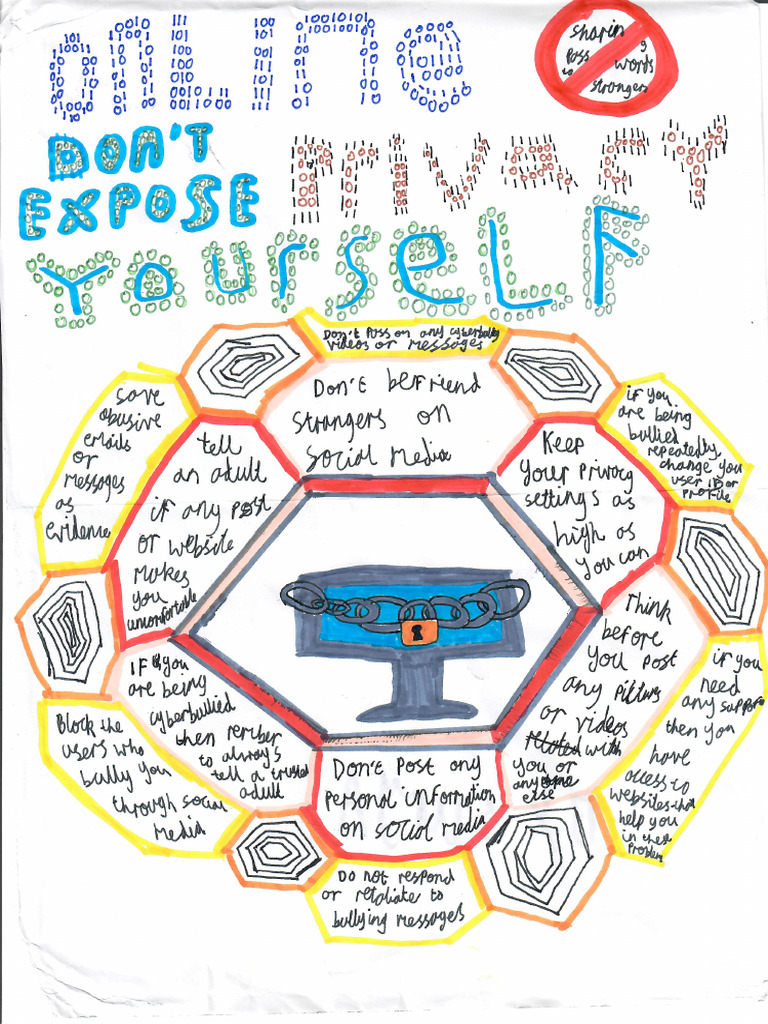 ONLINE
sharing
pass words
to strangers
DON'T
EXPOSE
PRIVACY
YOURSELF
Don't Pass on any cyberbully
videos or messages
Don't befriend
strangers on
social media
save
abusive
emails
or
messages
as
evidence
tell
an adult
if any post
or website
makes
you
uncomfortable
Keep
your privacy
settings as
high as
you can
if you
are being
bullied
repeatedly,
change your
user ID or
profile
IF you
are being
cyberbullied
then rember
to always
tell a trusted
adult
Think
before
you post
any pictures
or videos
related with
you or
anyone
else
Block the
users who
bully you
through social
media
Don't Post any
personal information
on social media
if you
need
any support
then you
have
access to
websites that
help you
in these
Problem
Do not respond
or retaliate to
bullying messages